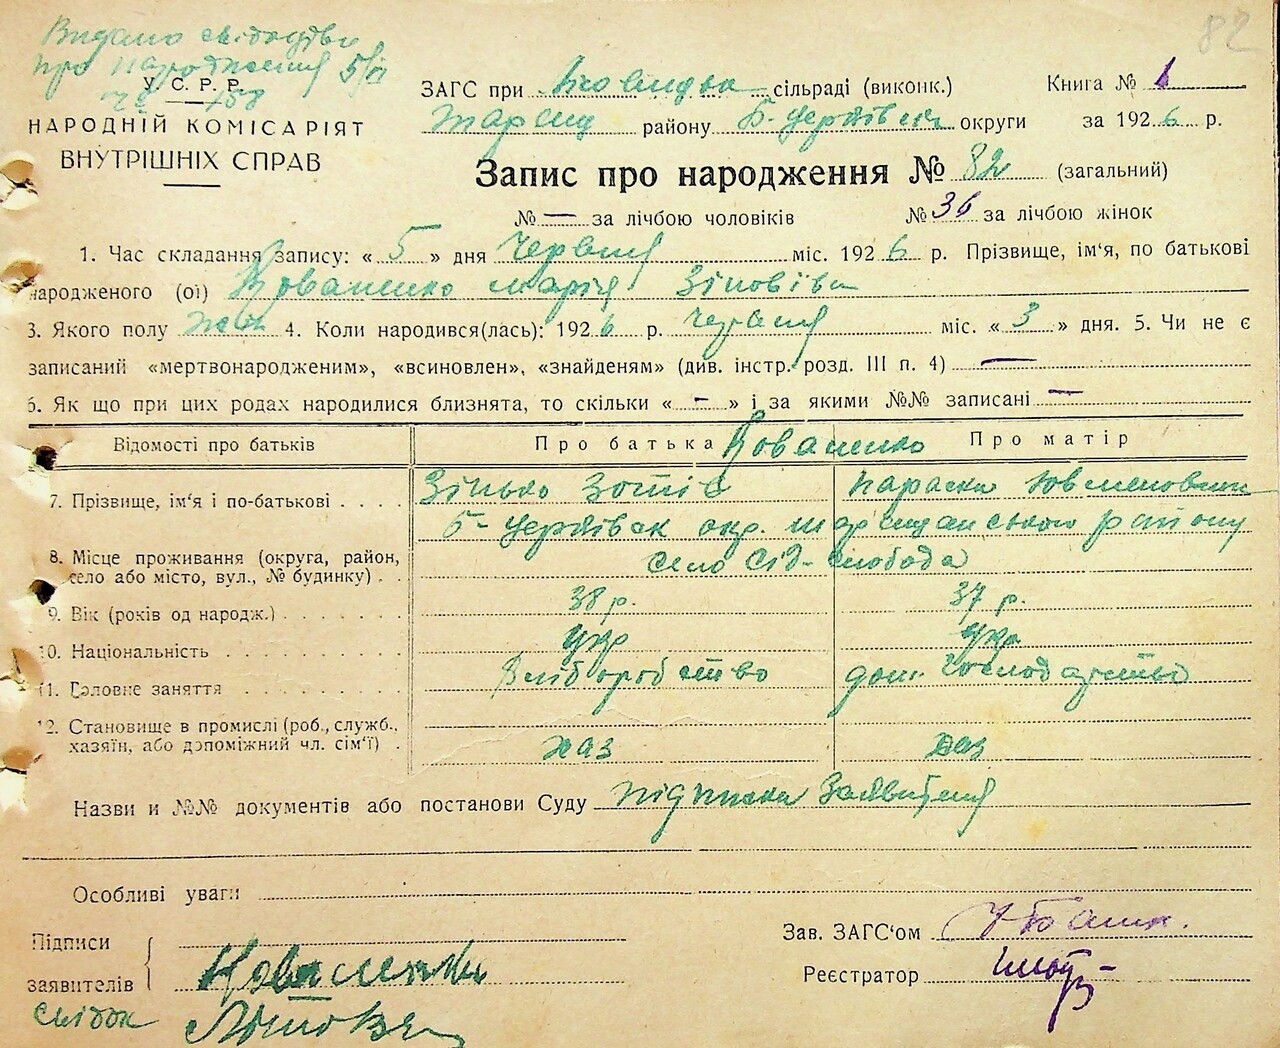 82
Видано свідоцтво
про народження
У. С. Р. Р.
НАРОДНІЙ КОМІСАРІЯТ
ВНУТРІШНІХ СПРАВ
ЗАГС при сільраді (виконк.) Книга № 1
Таращ району Б-Церківськ округи за 1926 р.
Запис про народження № 82 (загальний)
№ — за лічбою чоловіків № 36 за лічбою жінок
1. Час складання запису: « 5 » дня Червня міс. 1926 р. Прізвище, ім'я, по батькові
народженого (ої) Коваленко Марія Зіновіївн
3. Якого полу жін 4. Коли народився(лась): 1926 р. Червня міс. « 3 » дня. 5. Чи не є
записаний «мертвонародженим», «всиновлен», «знайденям» (див. інстр. розд. III п. 4) —
6. Як що при цих родах народилися близнята, то скільки « - » і за якими №№ записані —
Відомості про батьків Про батька Про матір
Коваленко
7. Прізвище, ім'я і по-батькові Зінько Зотів Параска
Б-Церківськ окр. Таращанського району
8. Місце проживання (округа, район, село або місто, вул., № будинку) село слобода
9. Вік (років од народж.) 38 р. 37 р.
10. Національність укр укр
11. Головне заняття Хліборобство дом. господарство
12. Становище в промислі (роб., служб., хазяїн, або допоміжний чл. сім'ї) хаз
Назви и №№ документів або постанови Суду підписка Заявителя
Особливі уваги
Підписи
заявителів Коваленко
свідок
Зав. ЗАГС'ом
Реєстратор